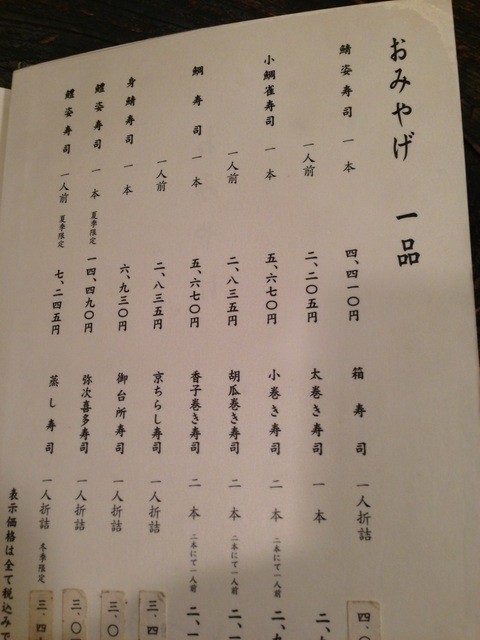 おみやげ 一品
鯖姿寿司 一本 四、四一〇円
一人前 二、二〇五円
小鯛雀寿司 一本 五、六七〇円
一人前 二、八三五円
鯛寿司 一本 五、六七〇円
一人前 二、八三五円
身鯖寿司 一本 六、九三〇円
鱧姿寿司 一本 夏季限定 一四、四九〇円
鱧姿寿司 一人前 夏季限定 七、二四五円
箱寿司 一人折詰 四、〇
太巻き寿司 一本 二、
小巻き寿司 二本 二本にて一人前 二、
胡瓜巻き寿司 二本 二本にて一人前 二、
香子巻き寿司 二本 二本にて一人前 二、
京ちらし寿司 一人折詰 三、四
御台所寿司 一人折詰 三、〇
弥次喜多寿司 一人折詰 三、〇
蒸し寿司 一人折詰 冬季限定 三、四
表示価格は全て税込みで